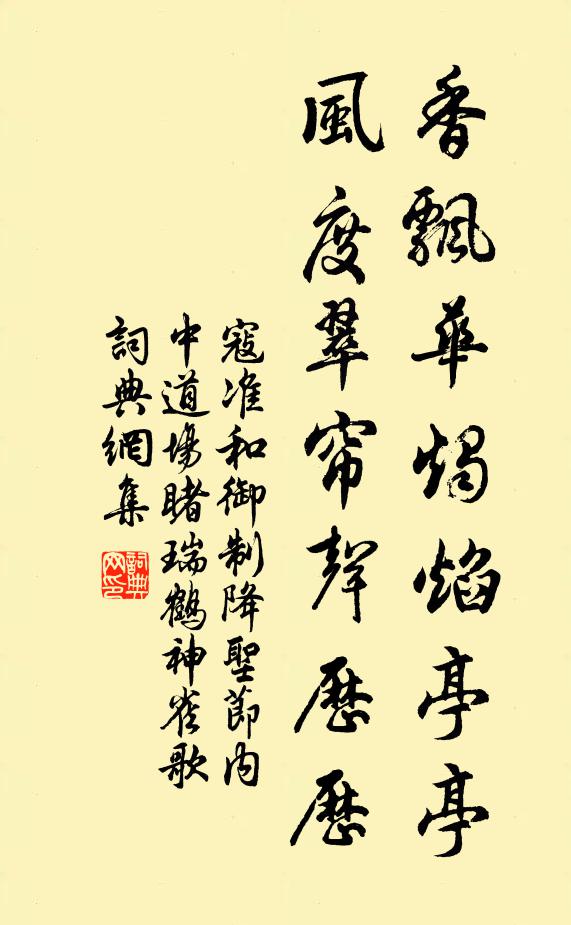 香飄華燭焰亭亭
風度翠帘聲歷歷
寇准和御制降聖節內
中道場睹瑞鶴神雀歌
詞典網集
詞典
网印